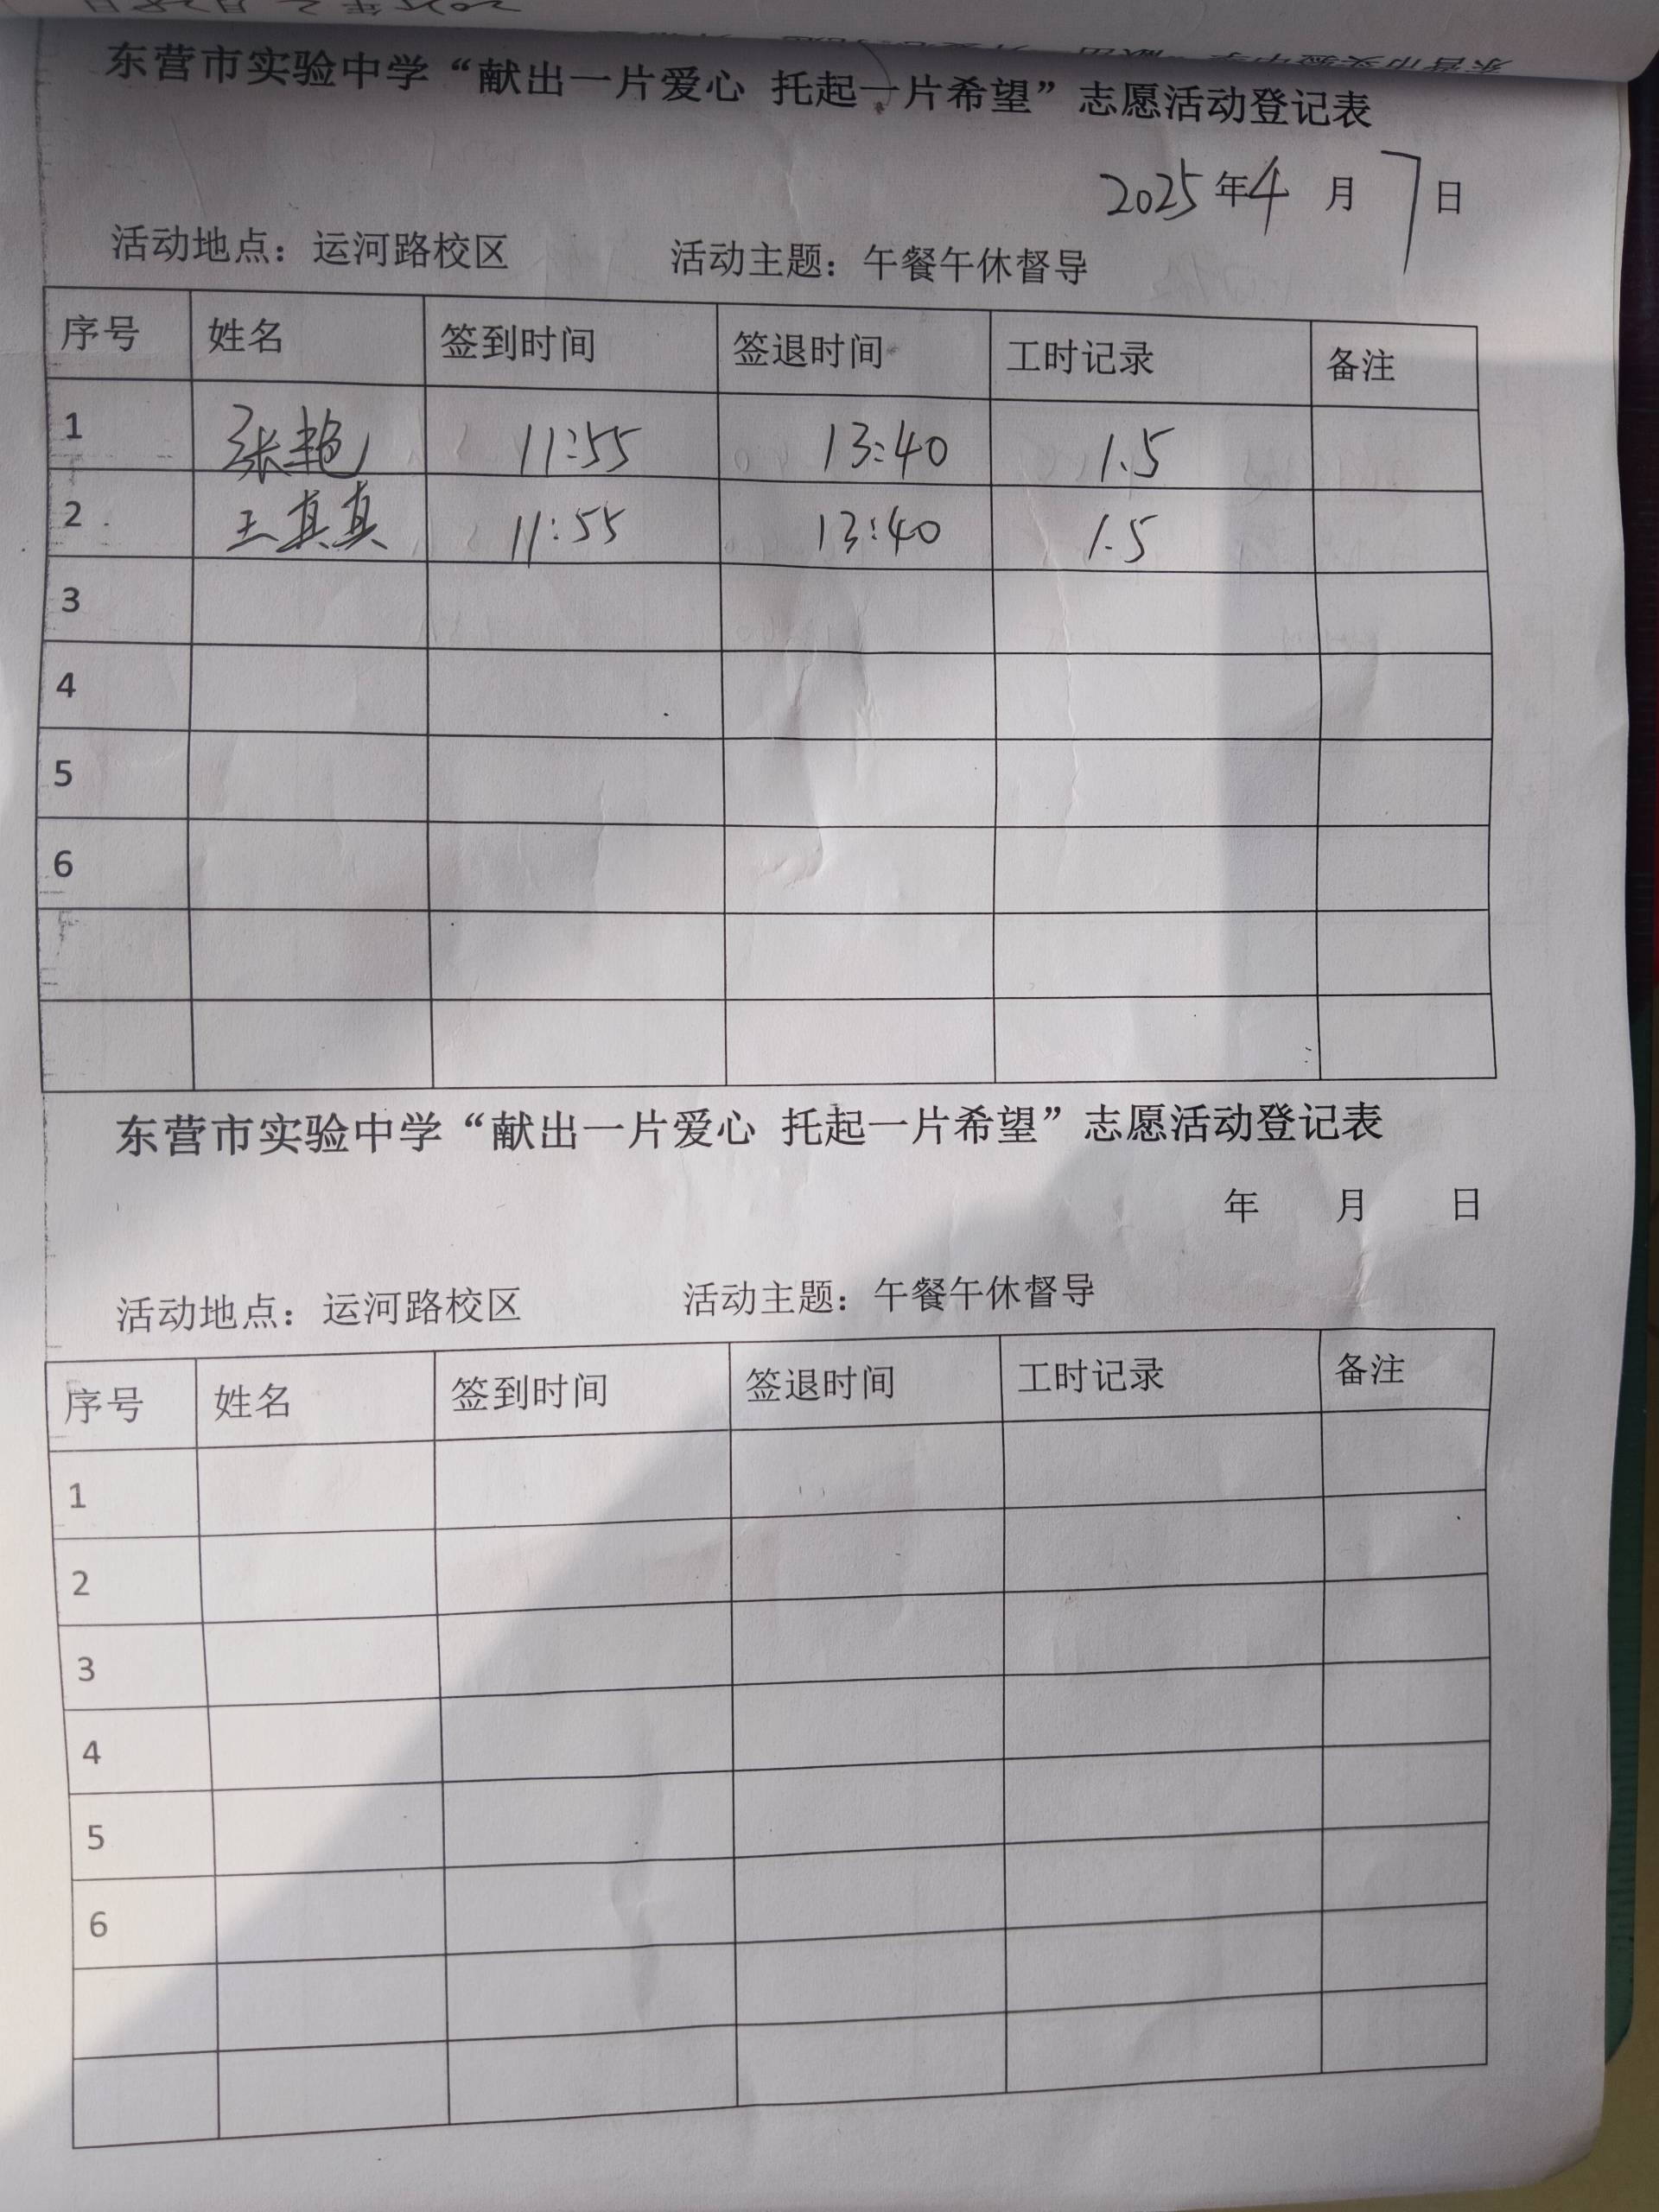 2025年2月28日
东营市实验中学“献出一片爱心 托起一片希望”志愿活动登记表
2025年4月7日
活动地点：运河路校区 活动主题：午餐午休督导
序号 姓名 签到时间 签退时间 工时记录 备注
1 张艳 11:55 13:40 1.5
2 王真真 11:55 13:40 1.5
3
4
5
6
东营市实验中学“献出一片爱心 托起一片希望”志愿活动登记表
年 月 日
活动地点：运河路校区 活动主题：午餐午休督导
序号 姓名 签到时间 签退时间 工时记录 备注
1
2
3
4
5
6